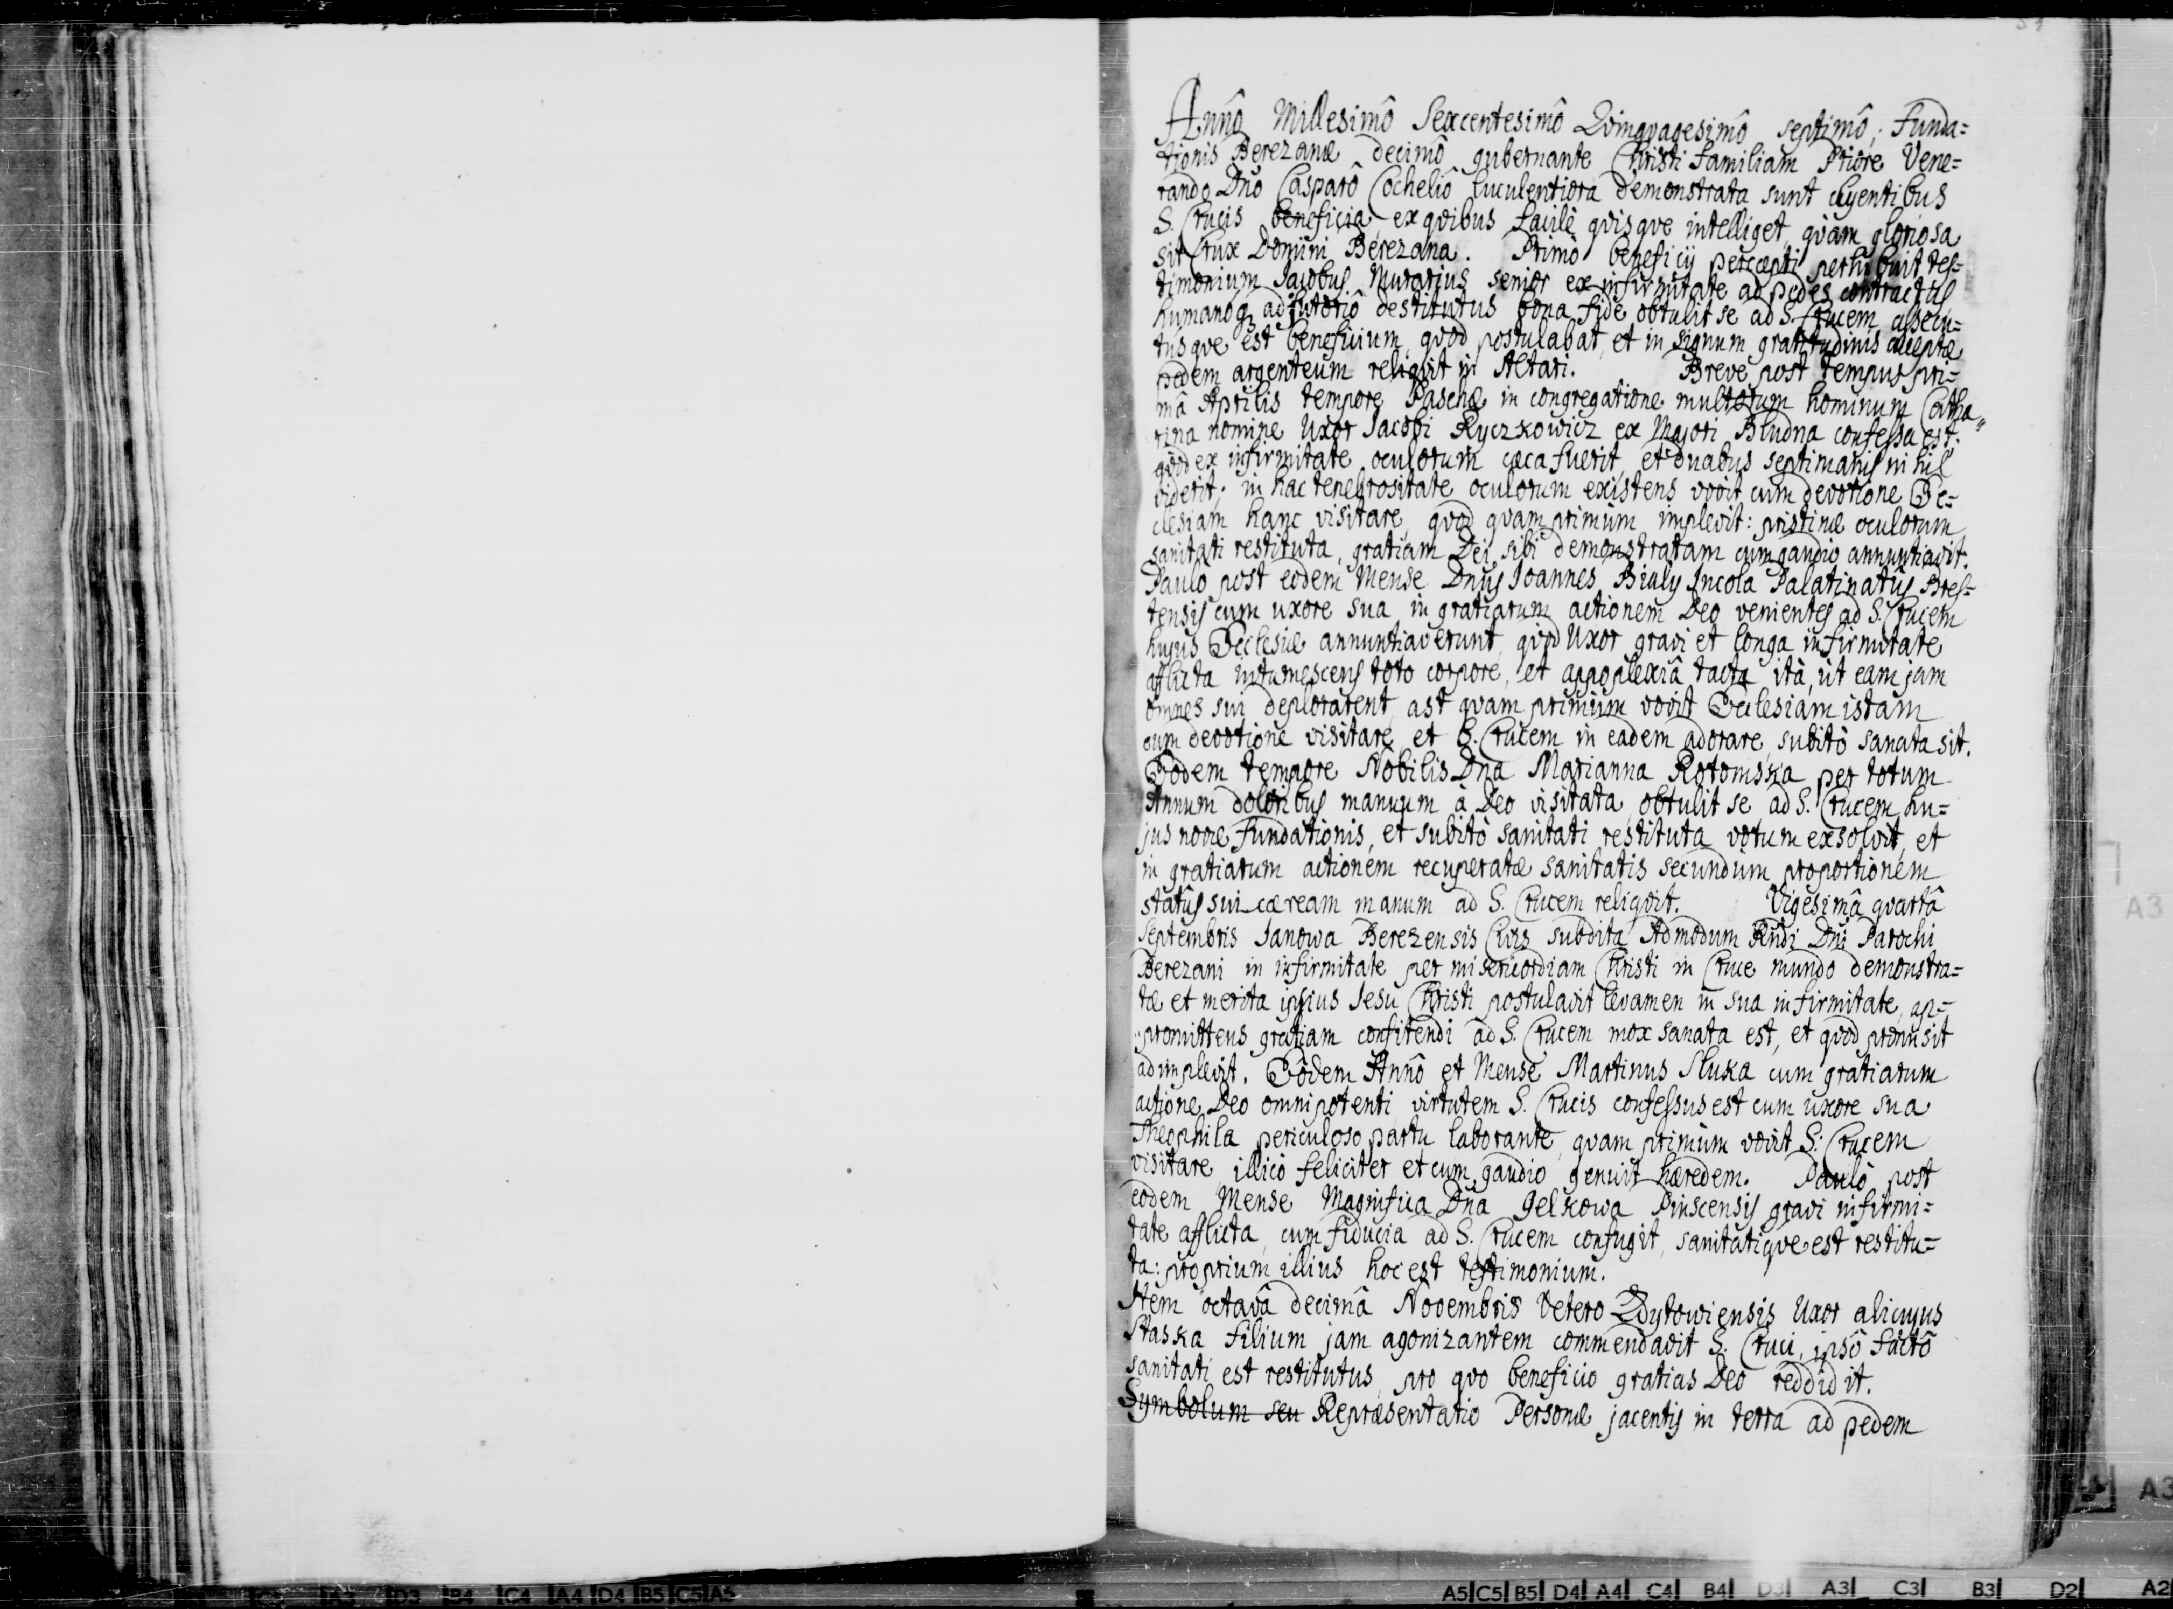 Annô Millesimô Sexcentesimô Qvinqvagesimô septimô, Funda=
tionis Berezanæ decimô gubernante Christi familiam Priore Vene=
rando Dno Casparô Cocheliô luculentiora demonstrata sunt
S. Crucis beneficia, ex qvibus facilè qvisqve intelliget, qvàm gloriosa
sit Crux Domini Berezana. Primò beneficij percepti perhibuit tes=
timonium Jacobus Murarius senior ex infirmitate ad pedes contractus
humanoq adjutoriô destitutus bona fide obtulit se ad S. Crucem assecu=
tusqve est beneficium, qvod postulabat, et in signum gratitudinis acceptæ
pedem argenteum reliqvit in Altari. Breve post tempus pri=
mâ Aprilis tempore Paschæ in congregatione multorum hominum Catha"
rina nomine Uxor Jacobi Ryczkowicz ex Majori Bludna confessa est.
qvod ex infirmitate oculorum cæca fuerit, et duabus septimanis nihil
viderit; in hac tenebrositate oculorum existens vovit cum devotione Ec=
clesiam hanc visitare, qvod qvam primùm implevit: pristinæ oculorum
sanitati restituta, gratiam Dei sibi demonstratam cum gaudio annuntiavit.
Paulo post eodem Mense Dnus Joannes Biuly Incola Palatinatûs Bres=
tensis cum uxore sua in gratiarum actionem Deo venientes ad S. Crucem
hujus Ecclesiæ annuntiaverunt, qvod Uxor gravi et longa infirmitate
aflicta intumescens toto corpore, et appoplexiâ tacta ità, ùt eam jam
omnes sui deplorarent, ast qvam primùm vovit Ecclesiam istam
cum devotione visitare, et S. Crucem in eadem adorare, subitò sanata sit.
Eodem tempore Nobilis Dna Marianna Rotomska per totum
Annum doloribus manuum à Deo visitata, obtulit se ad S. Crucem hu=
jus novæ Fundationis, et subitò sanitati restituta votum exsolvit, et
in gratiarum actionem recuperatæ sanitatis secundùm proportionem
statûs sui cæream manum ad S. Crucem reliqvit. Vigesimâ qvartâ
Septembris Janowa Berezensis Civis subdita Admodum Rndi Dni Parochi
Berezani in infirmitate per misericordiam Christi in Cruce mundo demonstra=
tæ et merita ipsius Jesu Christi postulavit levamen in sua infirmitate, ap=
promittens gratiam confitendi ad S. Crucem mox sanata est, et qvod promisit
adimplevit. Eôdem Annô et Mense Martinus Sluka cum gratiarum
actione Deo omnipotenti virtutem S. Crucis confessus est cum uxore sua
Theophila periculoso partu laborante, qvam primùm vovit S. Crucem
visitare illicò feliciter et cum gaudio genuit hæredem. Paulò post
eodem Mense Magnifica Dna Jelskowa Pinscensis gravi infirmi=
tate afflicta, cum fiducia ad S. Crucem confugit, sanitatiqve est restitu=
ta: proprium illius hoc est testimonium.
Item octavâ decimâ Novembris Vetero Zdytowiensis Uxor alicujus
Staska filium jam agonizantem commendavit S. Cruci, ipsô factô
sanitati est restitutus, pro qvo beneficio gratias Deo reddidit.
Symbolum seu Repræsentatio Personæ jacentis in terra ad pedem